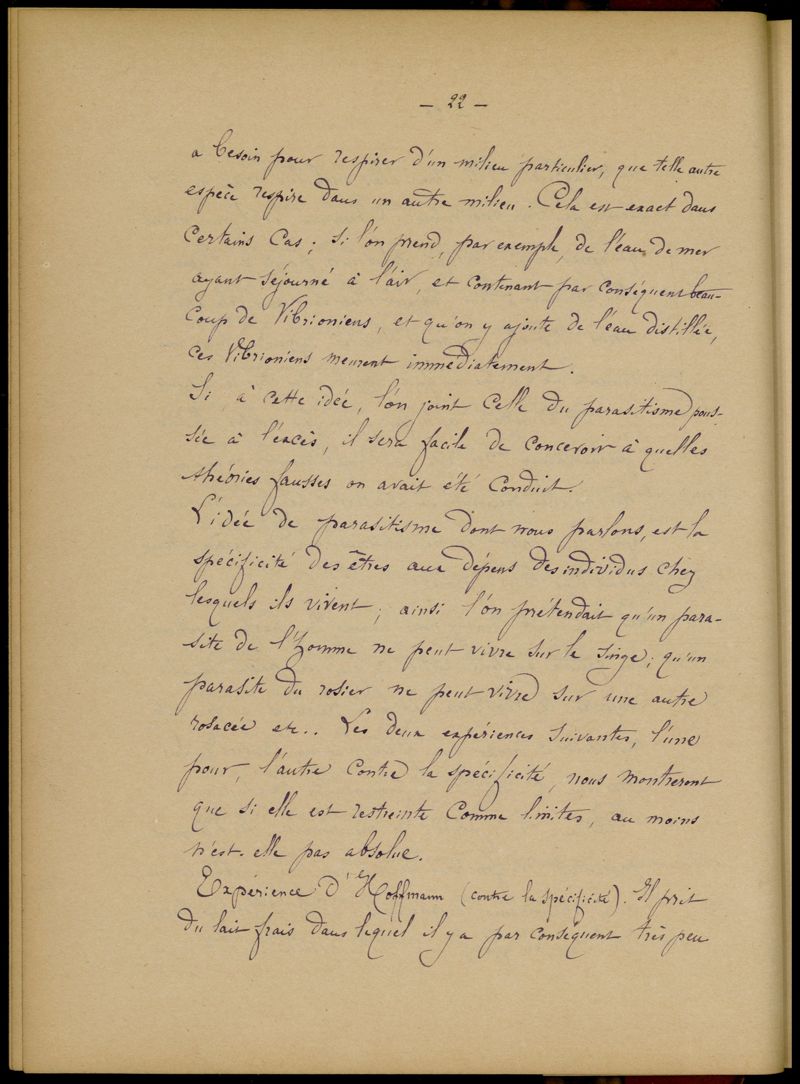 — 22 —
a besoin pour respirer d'un milieu particulier, que telle autre
espèce respire dans un autre milieu. Cela est exact dans
certains cas; si l'on prend, par exemple, de l'eau de mer
ayant séjourné à l'air, et contenant par conséquent beau-
coup de Vibrioniens, et qu'on y ajoute de l'eau distillée,
ces Vibrioniens meurent immédiatement.
Si à cette idée, l'on joint celle du parasitisme pous-
sée à l'excès, il sera facile de concevoir à quelles
théories fausses on avait été conduit.
L'idée de parasitisme dont nous parlons, est la
spécificité des êtres aux dépens des individus chez
lesquels ils vivent; ainsi l'on prétendait qu'un para-
site de l'homme ne peut vivre sur le singe; qu'un
parasite du rosier ne peut vivre sur une autre
rosacée etc.. Les deux expériences suivantes, l'une
pour, l'autre contre la spécificité, nous montreront
que si elle est restreinte comme limites, au moins
n'est-elle pas absolue.
Expérience d'Hoffmann (contre la spécificité). Il prit
du lait frais dans lequel il y a par conséquent très peu